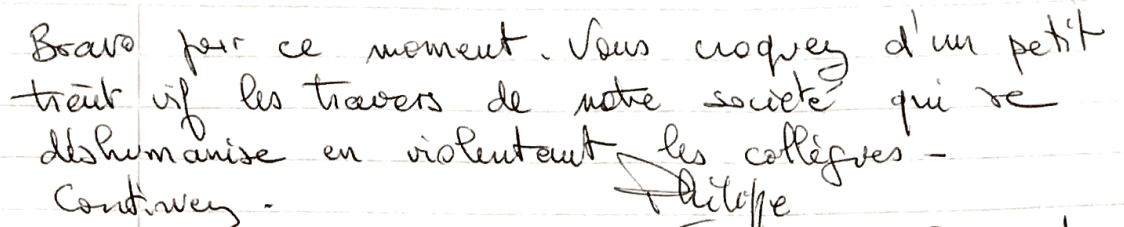 Bravo pour ce moment. Vous croquez d'un petit
trait vif les travers de notre société qui se
déshumanise en violentant les collègues -
Continuez.
Philippe